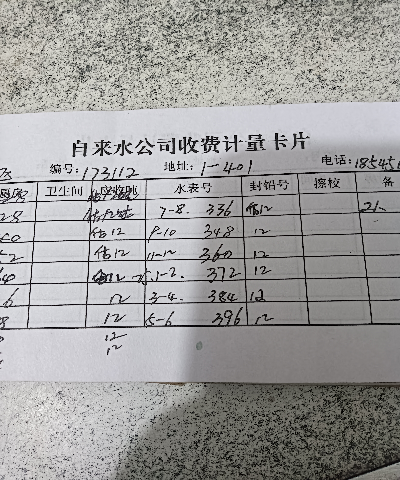 自来水公司收费计量卡片
编号:173112 地址:1-401 电话:185450
卫生间 水表号 封铅号 擦校 备
28 7-8. 336 估12 21
40 估12 9-10 348 12
52 估12 11-12 360 12
1-2. 372 12
6 12 3-4. 384 12
8 12 5-6 396 12
12
12